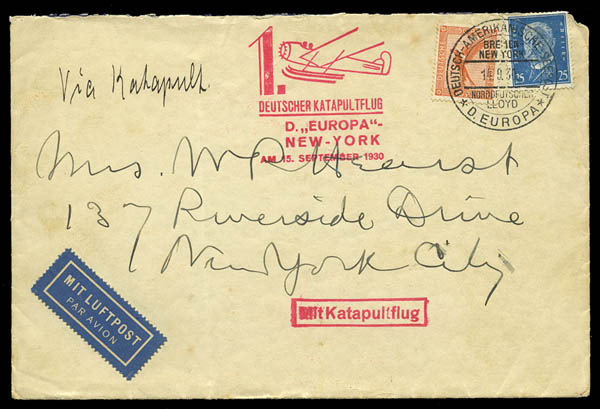 Via Katapult.
1.
DEUTSCHER KATAPULTFLUG
D. „EUROPA"-
NEW-YORK
AM 15. SEPTEMBER 1930
DEUTSCH-AMERIKANISCHE
BREMEN
NEW YORK
NORDDEUTSCHER
LLOYD
★ D. EUROPA ★
25
25
Mrs. W R Hearst
137 Riverside Drive
New York City
MIT LUFTPOST
PAR AVION
Mit Katapultflug